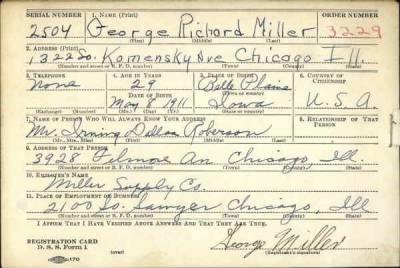 SERIAL NUMBER 1. NAME (Print) ORDER NUMBER
2504 George Richard Miller 3229
(First) (Middle) (Last)
2. ADDRESS (Print)
1322 So. Komensky Ave Chicago Ill.
(Number and street or R. F. D. number) (Town) (County) (State)
3. TELEPHONE 4. AGE IN YEARS 5. PLACE OF BIRTH 6. COUNTRY OF CITIZENSHIP
None 29 Belle Plaine
DATE OF BIRTH
May 8 1911 Iowa U. S. A.
(Exchange) (Number) (Mo.) (Day) (Yr.) (State or country)
7. NAME OF PERSON WHO WILL ALWAYS KNOW YOUR ADDRESS 8. RELATIONSHIP OF THAT PERSON
Mr. Irving Dillon Roberson
(Mr., Mrs., Miss) (First) (Middle) (Last)
9. ADDRESS OF THAT PERSON
3928 Filmore Chicago, Ill.
(Number and street or R. F. D. number) (Town) (County) (State)
10. EMPLOYER'S NAME
Miller Supply Co.
11. PLACE OF EMPLOYMENT OR BUSINESS
2100 So. Sawyer Chicago, Ill
(Number and street or R. F. D. number) (Town) (County) (State)
I AFFIRM THAT I HAVE VERIFIED ABOVE ANSWERS AND THAT THEY ARE TRUE.
REGISTRATION CARD
D. S. S. Form 1 (over) George Miller
170 (Registrant's signature)